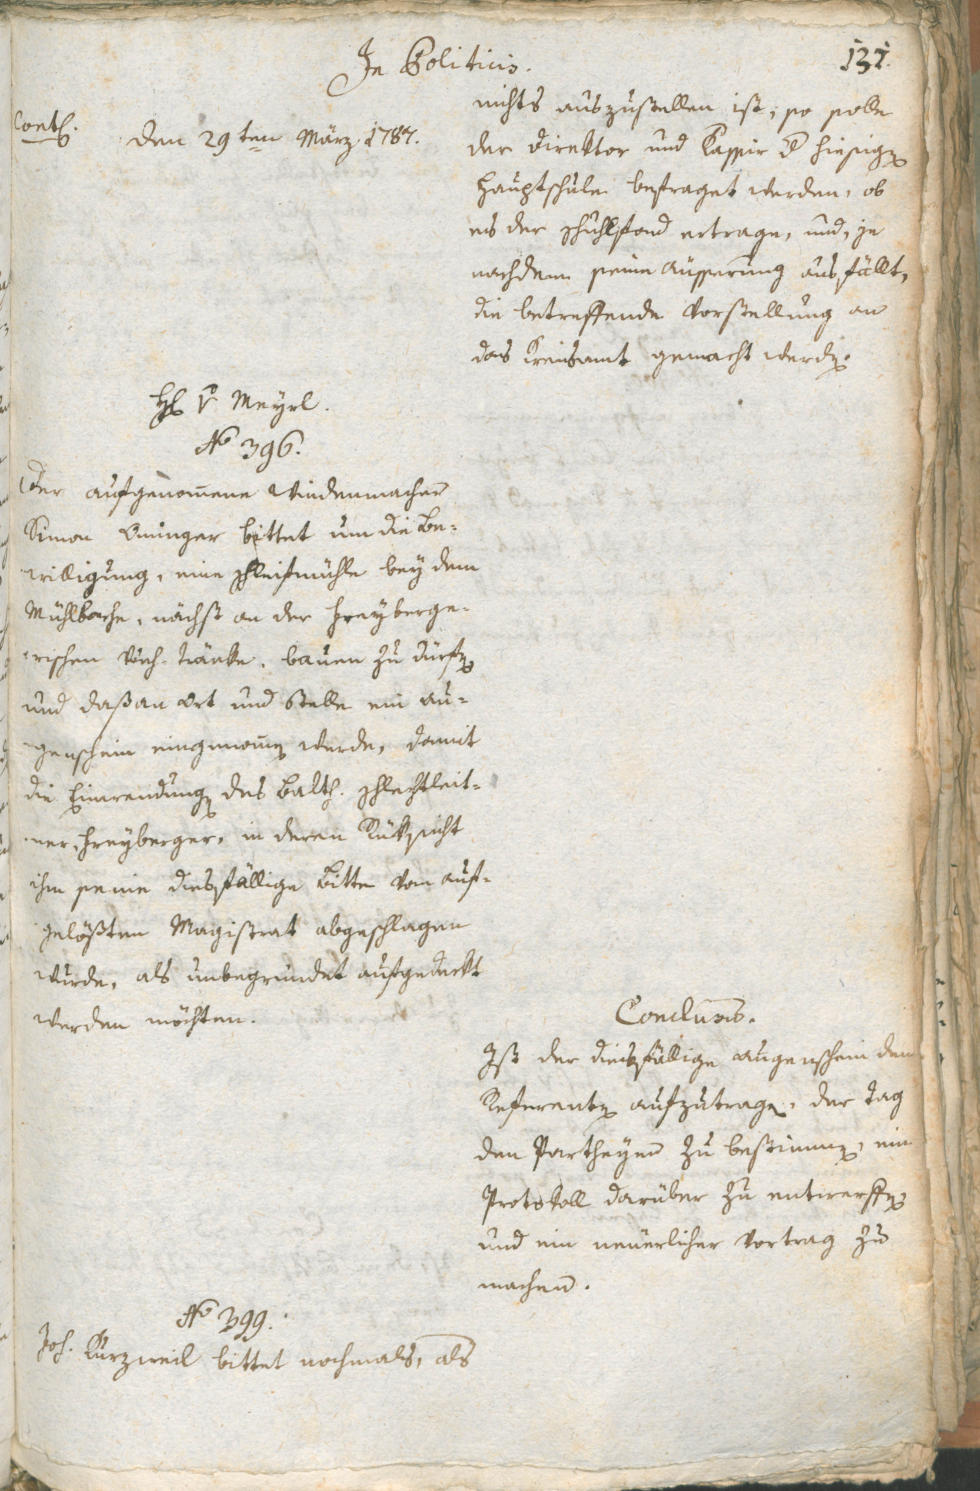 In Politicis.
131.
Cont.
Den 29ten März 1787.
nichts auszustellen ist; so solle
der Direktor und Kassir der hiesigen
Hauptschule befraget werden, ob
es der Schuhlfond ertrage, und, je
nachdem seine Äusserung ausfällt,
die betreffende Vorstellung an
das Kreisamt gemacht werden.
H. v. Meyrl.
No 396.
Der aufgenommene Windenmacher
Simon bittet um die Be-
willigung, eine Schleifmühle bey dem
Mühlbache, nächst an der Freyberge-
rischen Vieh-Tränke, bauen zu dürfen
und daß an Ort und Stelle ein Au-
genschein eingenommen werde, damit
die Einwendungen des Balth. Schlechtleit-
ner, Freyberger, in deren Rüksicht
ihm seine diesfällige Bitte vom auf-
gelößten Magistrat abgeschlagen
wurde, als unbegründet aufgedeckt
werden möchten.
Conclusis.
Ist der diesfällige Augenschein dem
Referenten aufzutragen, der Tag
den Partheyen zu bestimmen, ein
Protokoll darüber zu entwerffen
und ein neuerlicher Vortrag zu
machen.
No 399.
Joh. Kurzweil bittet nochmals, als